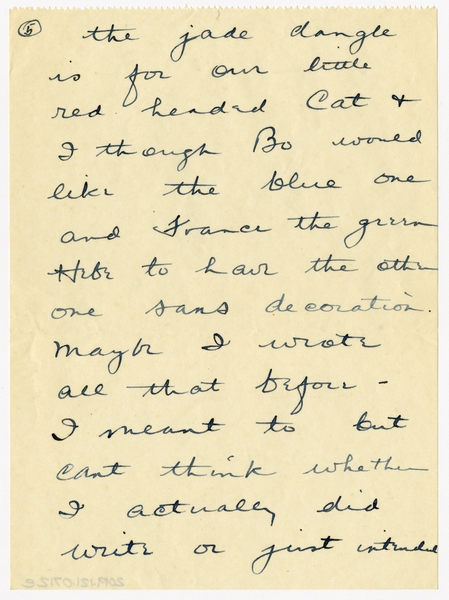 5
the jade dangle
is for our little
red headed Cat &
I though Bo would
like the blue one
and France the green
Hebe to have the other
one sans decoration.
Maybe I wrote
all that before -
I meant to but
cant think whether
I actually did
write or just intended
2019.121.0712e